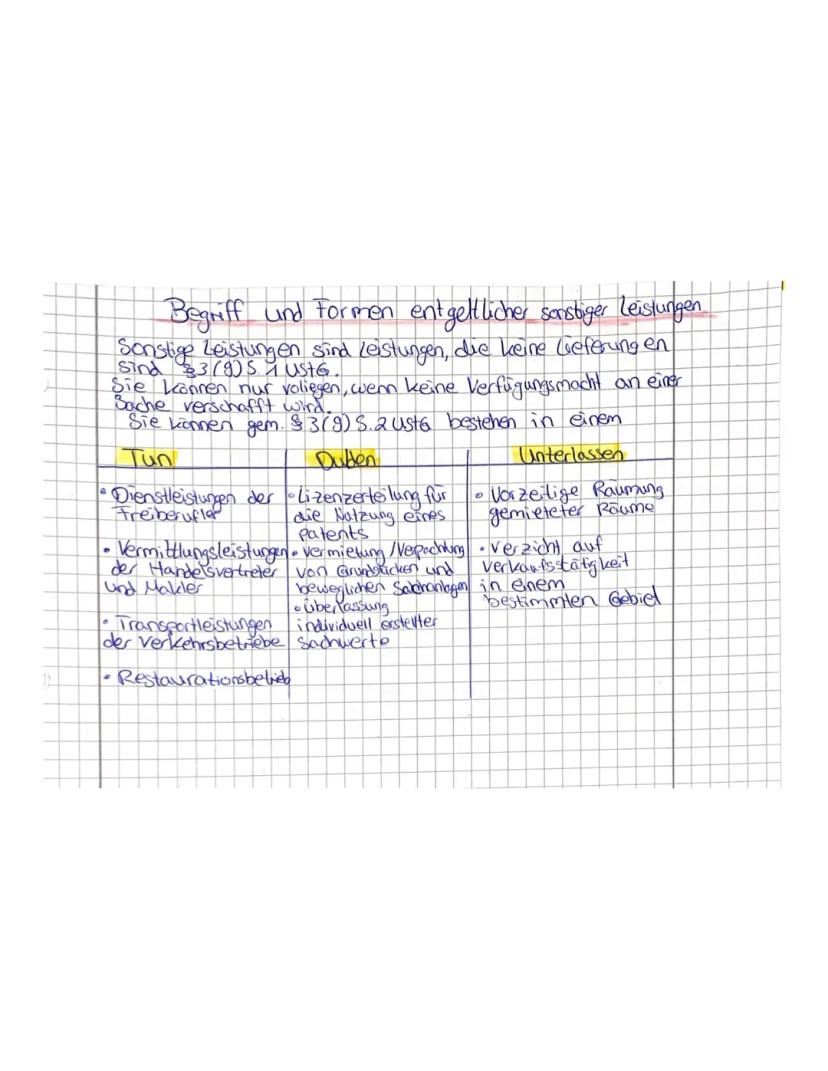 Begriff und Formen entgeltlicher sonstiger Leistungen
Sonstige Leistungen sind Leistungen, die keine Lieferungen
sind §3(9)S.1 UStG.
Sie können nur voliegen, wenn keine Verfügungsmacht an einer
Sache verschafft wird.
Sie können gem. §3(9) S.2 UStG bestehen in einem
Tun
• Dienstleistungen der
Freiberufler
• Vermittlungsleistungen
der Handelsvertreter
und Makler
• Transportleistungen
der Verkehrsbetriebe
• Restaurationsbetrieb
Dulden
• Lizenzerteilung für
die Nutzung eines
patents
• Vermietung/Verpachtung
von Grundstücken und
beweglichen Sachanlagen
• überlassung
individuell erstellter
Sachwerte
Unterlassen
• Vorzeilige Räumung
gemieteter Räume
• verzicht auf
Verkaufstätigkeit
in einem
bestimmten Gebiet